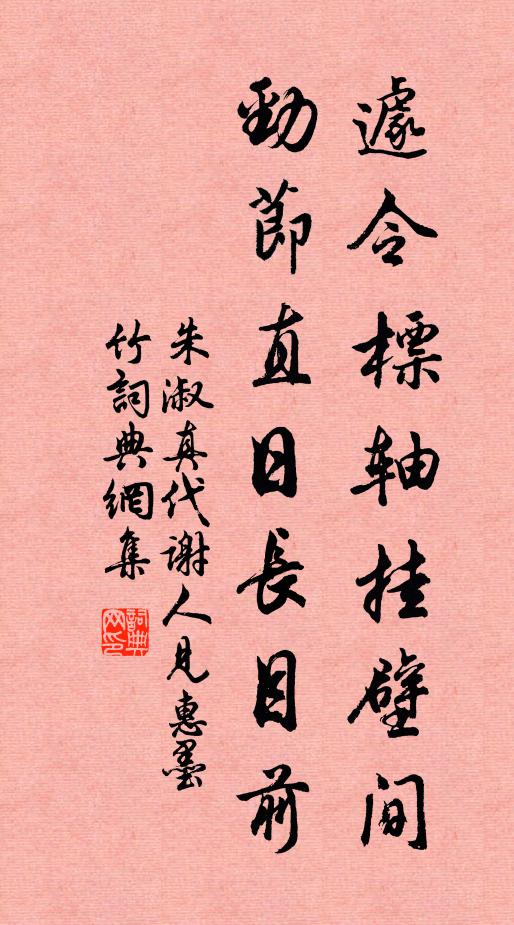 遽令標軸挂壁間
勁節直日長目前
朱淑真代謝人見惠墨
竹詞典網集
詞典网印